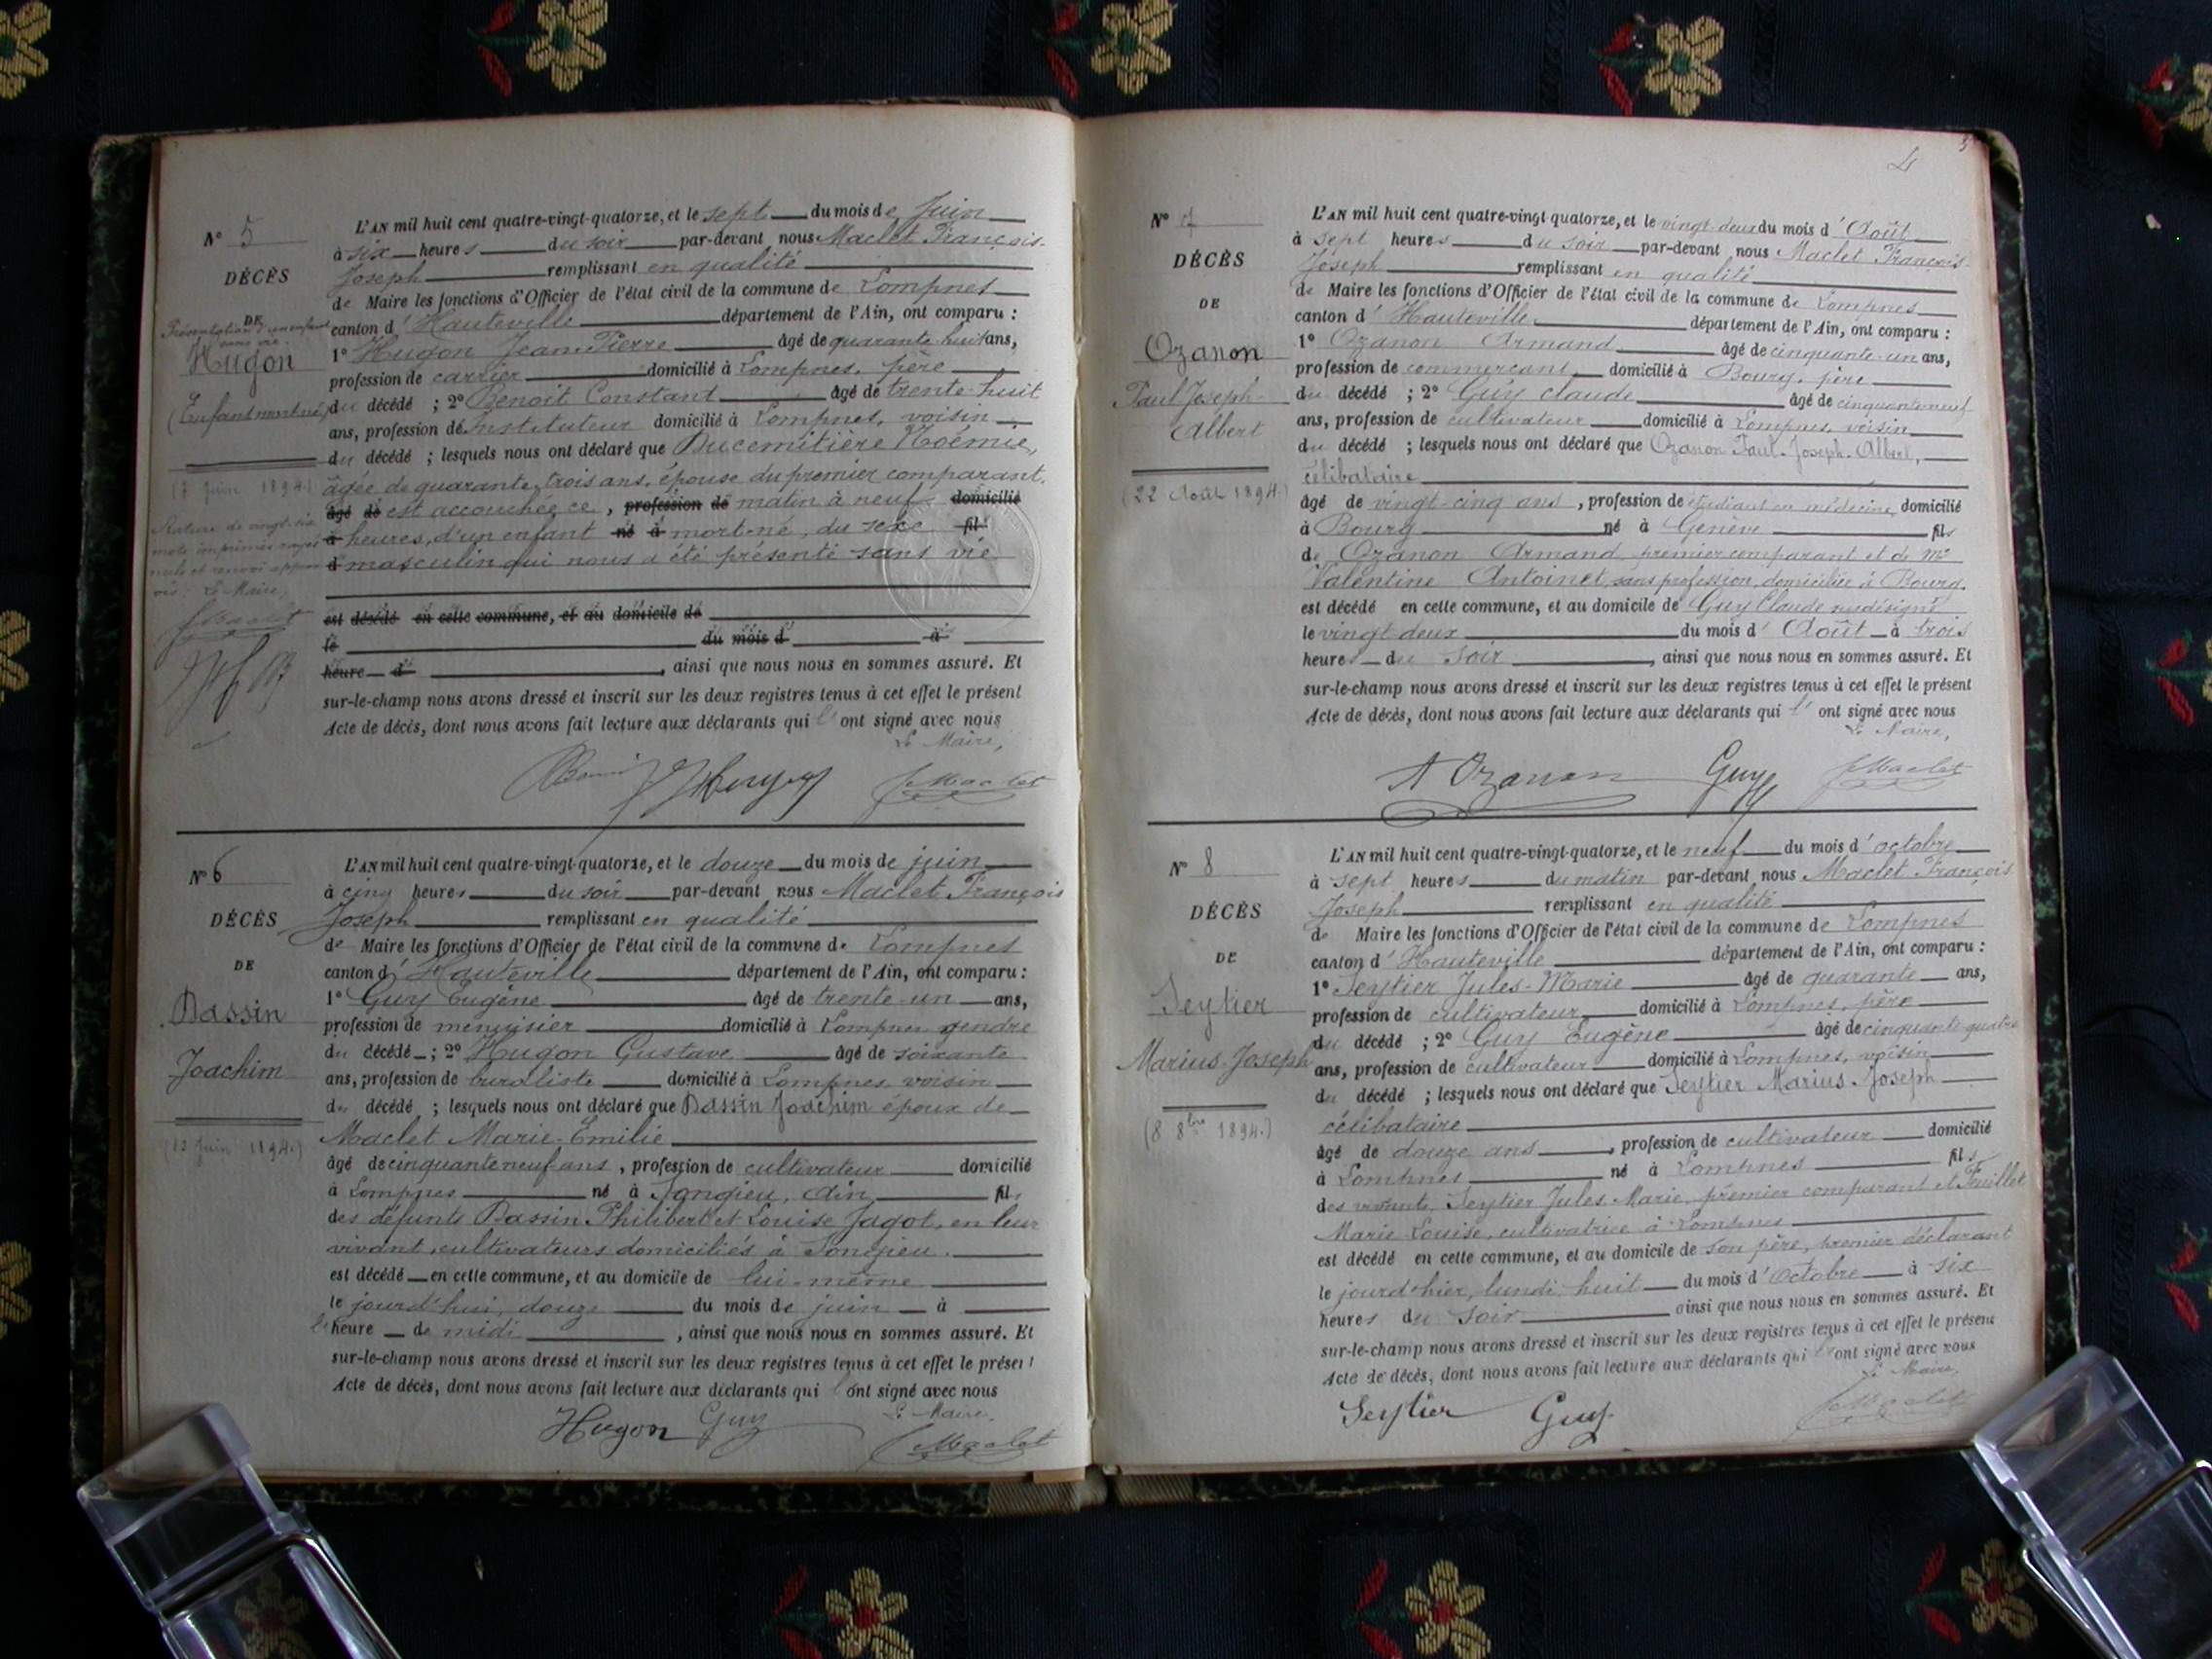 N° 5
DÉCÈS
DE
Présentation d'un enfant
sans vie.
Hugon
(Enfant mort-né)
(7 Juin 1894.)
Rature de vingt-six
mots imprimés rayés
nuls et renvoi
Le Maire,
JMaclet
L'AN mil huit cent quatre-vingt-quatorze, et le sept du mois de Juin
à six heures du soir par-devant nous Maclet François-
Joseph remplissant en qualité
de Maire les fonctions d'Officier de l'état civil de la commune de Lompnes
canton d'Hauteville département de l'Ain, ont comparu :
1° Hugon Jean-Pierre âgé de quarante-huit ans,
profession de carrier domicilié à Lompnes, père
du décédé ; 2° Benoit Constant âgé de trente-huit
ans, profession de Instituteur domicilié à Lompnes, voisin
du décédé ; lesquels nous ont déclaré que Ducemitière Noémie,
âgée de quarante-trois ans, épouse du premier comparant,
âgé de est accouchée ce, profession de matin à neuf domicilié
à heures, d'un enfant né à mort-né, du sexe fil
d masculin qui nous a été présenté sans vie
est décédé en cette commune, et au domicile de
le du mois d à
heure d , ainsi que nous nous en sommes assuré. Et
sur-le-champ nous avons dressé et inscrit sur les deux registres tenus à cet effet le présent
Acte de décès, dont nous avons fait lecture aux déclarants qui l'ont signé avec nous
Le Maire,
JMaclet
N° 6
DÉCÈS
DE
Dassin
Joachim
(12 Juin 1894.)
L'AN mil huit cent quatre-vingt-quatorze, et le douze du mois de juin
à cinq heures du soir par-devant nous Maclet François
Joseph remplissant en qualité
de Maire les fonctions d'Officier de l'état civil de la commune de Lompnes
canton d'Hauteville département de l'Ain, ont comparu :
1° Guy Eugène âgé de trente-un ans,
profession de menuisier domicilié à Lompnes gendre
du décédé ; 2° Hugon Gustave âgé de soixante
ans, profession de buraliste domicilié à Lompnes, voisin
du décédé ; lesquels nous ont déclaré que Dassin Joachim époux de
Maclet Marie-Emilie
âgé de cinquante neuf ans, profession de cultivateur domicilié
à Lompnes né à Songieu, Ain, fils
des défunts Dassin Philibert et Louise Jagot, en leur
vivant, cultivateurs domiciliés à Songieu.
est décédé en cette commune, et au domicile de lui-même
le jourd'hui, douze du mois de juin à
l'heure de midi , ainsi que nous nous en sommes assuré. Et
sur-le-champ nous avons dressé et inscrit sur les deux registres tenus à cet effet le présent
Acte de décès, dont nous avons fait lecture aux déclarants qui l'ont signé avec nous
Le Maire,
Hugon Guy JMaclet
4
5
N° 7
DÉCÈS
DE
Ozanon
Paul-Joseph-
Albert
(22 Août 1894.)
L'AN mil huit cent quatre-vingt-quatorze, et le vingt-deux du mois d'Août
à sept heures du soir par-devant nous Maclet François-
Joseph remplissant en qualité
de Maire les fonctions d'Officier de l'état civil de la commune de Lompnes
canton d'Hauteville département de l'Ain, ont comparu :
1° Ozanon Armand âgé de cinquante-un ans,
profession de commerçant domicilié à Bourg, père
du décédé ; 2° Guy Claude âgé de cinquante neuf
ans, profession de cultivateur domicilié à Lompnes, voisin
du décédé ; lesquels nous ont déclaré que Ozanon Paul-Joseph-Albert,
célibataire
âgé de vingt-cinq ans, profession de étudiant en médecine, domicilié
à Bourg né à Genève fils
de Ozanon Armand, premier comparant et de Me
Valentine Antoinet, sans profession, domiciliée à Bourg.
est décédé en cette commune, et au domicile de Guy Claude susdésigné
le vingt deux du mois d'Août à trois
heures du soir , ainsi que nous nous en sommes assuré. Et
sur-le-champ nous avons dressé et inscrit sur les deux registres tenus à cet effet le présent
Acte de décès, dont nous avons fait lecture aux déclarants qui l'ont signé avec nous
Le Maire,
A Ozanon Guy JMaclet
N° 8
DÉCÈS
DE
Seytier
Marius-Joseph
(8 8bre 1894.)
L'AN mil huit cent quatre-vingt-quatorze, et le neuf du mois d'octobre
à sept heures du matin par-devant nous Maclet François
Joseph remplissant en qualité
de Maire les fonctions d'Officier de l'état civil de la commune de Lompnes
canton d'Hauteville département de l'Ain, ont comparu :
1° Seytier Jules-Marie âgé de quarante ans,
profession de cultivateur domicilié à Lompnes, père
du décédé ; 2° Guy Eugène âgé de cinquante-quatre
ans, profession de cultivateur domicilié à Lompnes, voisin
du décédé ; lesquels nous ont déclaré que Seytier Marius-Joseph
célibataire
âgé de douze ans , profession de cultivateur domicilié
à Lompnes né à Lompnes fils
des vivants, Seytier Jules-Marie, premier comparant et Fuillet
Marie Louise, cultivatrice à Lompnes
est décédé en cette commune, et au domicile de son père, premier déclarant
le jourd'hier, lundi huit du mois d'octobre à six
heures du soir ainsi que nous nous en sommes assuré. Et
sur-le-champ nous avons dressé et inscrit sur les deux registres tenus à cet effet le présent
Acte de décès, dont nous avons fait lecture aux déclarants qui l'ont signé avec nous
Le Maire,
Seytier Guy JMaclet